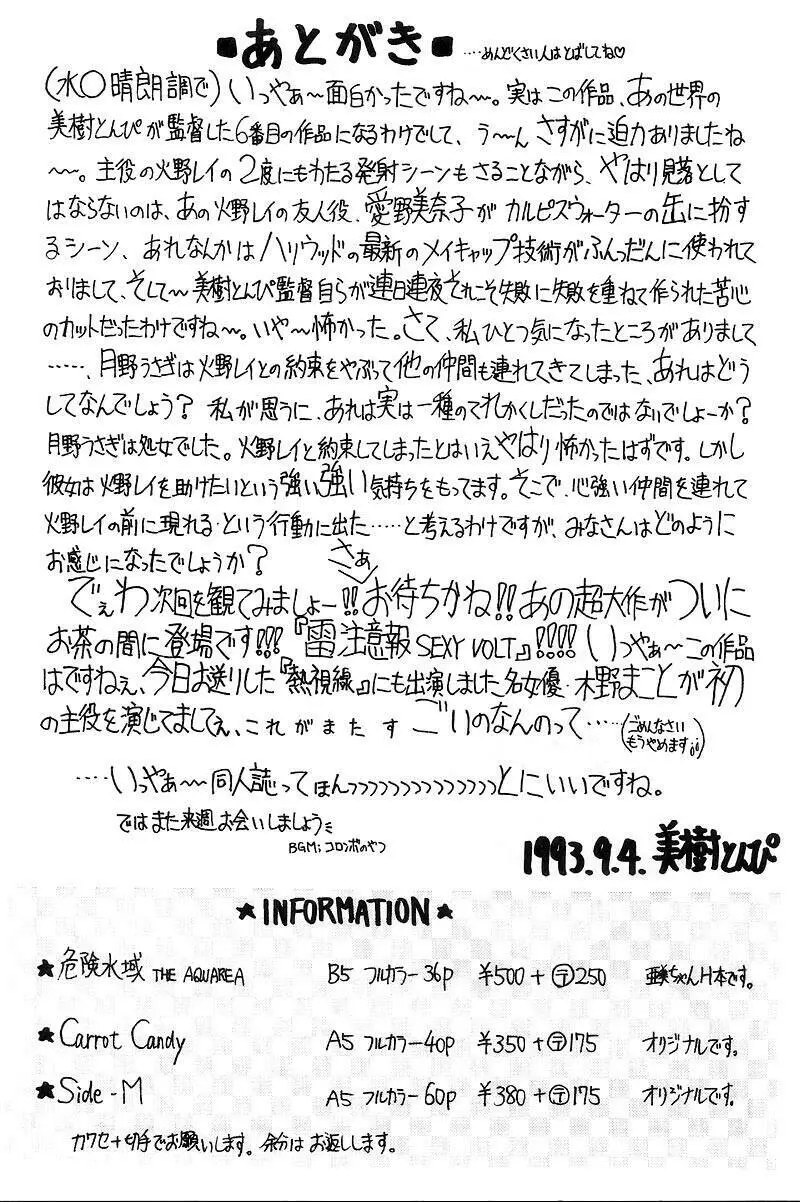 ■あとがき■ ‥‥めんどくさい人はとばしてね♡
(水○晴朗調で)いっやぁ〜面白かったですね〜。実はこの作品、あの世界の
美樹とんぴが監督した6番目の作品になるわけでして、う〜ん さすがに迫力ありましたね
〜。主役の火野レイの2度にもわたる発射シーンもさることながら、やはり見落として
はならないのは、あの火野レイの友人役、愛野美奈子がカルピスウォーターの缶に扮す
るシーン、あれなんかはハリウッドの最新のメイキャップ技術がふんっだんに使われて
おりまして、そして〜美樹とんぴ監督自らが連日連夜それこそ失敗に失敗を重ねて作られた苦心
のカットだったわけですね〜。いや〜怖かった。さて、私ひとつ気になったところがありまして
‥‥‥、月野うさぎは火野レイとの約束をやぶって他の仲間も連れてきてしまった、あれはどう
してなんでしょう? 私が思うに、あれは実は一種のてれかくしだったのではないでしょーか?
月野うさぎは処女でした。火野レイと約束してしまったとはいえやはり怖かったはずです。しかし
彼女は火野レイを助けたいという強い強い気持ちをもってます。そこで、心強い仲間を連れて
火野レイの前に現れる・という行動に出た‥‥‥と考えるわけですが、みなさんはどのように
お感じになったでしょうか?
さぁ
でぇわ次回を観てみましょー!!お待ちかね!!あの超大作がついに
お茶の間に登場です!!!『雷注意報 SEXY VOLT』!!!!いっやぁ〜この作品
はですねぇ、今日お送りした『熱視線』にも出演しました名女優・木野まことが初
の主役を演じてましてぇ、これがまたすごいのなんのって‥‥‥(ごめんなさい
もうやめます)
‥‥いっやぁ〜同人誌ってほんっっっっっっっっっっっっっっとにいいですね。
ではまた来週お会いしましょう
BGM;コロンボのやつ
1993.9.4. 美樹とんぴ
★INFORMATION★
★危険水域 THE AQUAREA B5 フルカラー36p ¥500+〒250 亜美ちゃんH本です。
★Carrot Candy A5 フルカラー40p ¥350+〒175 オリジナルです。
★Side-M A5 フルカラー60p ¥380+〒175 オリジナルです。
カワセ+切手でお願いします。余分はお返しします。